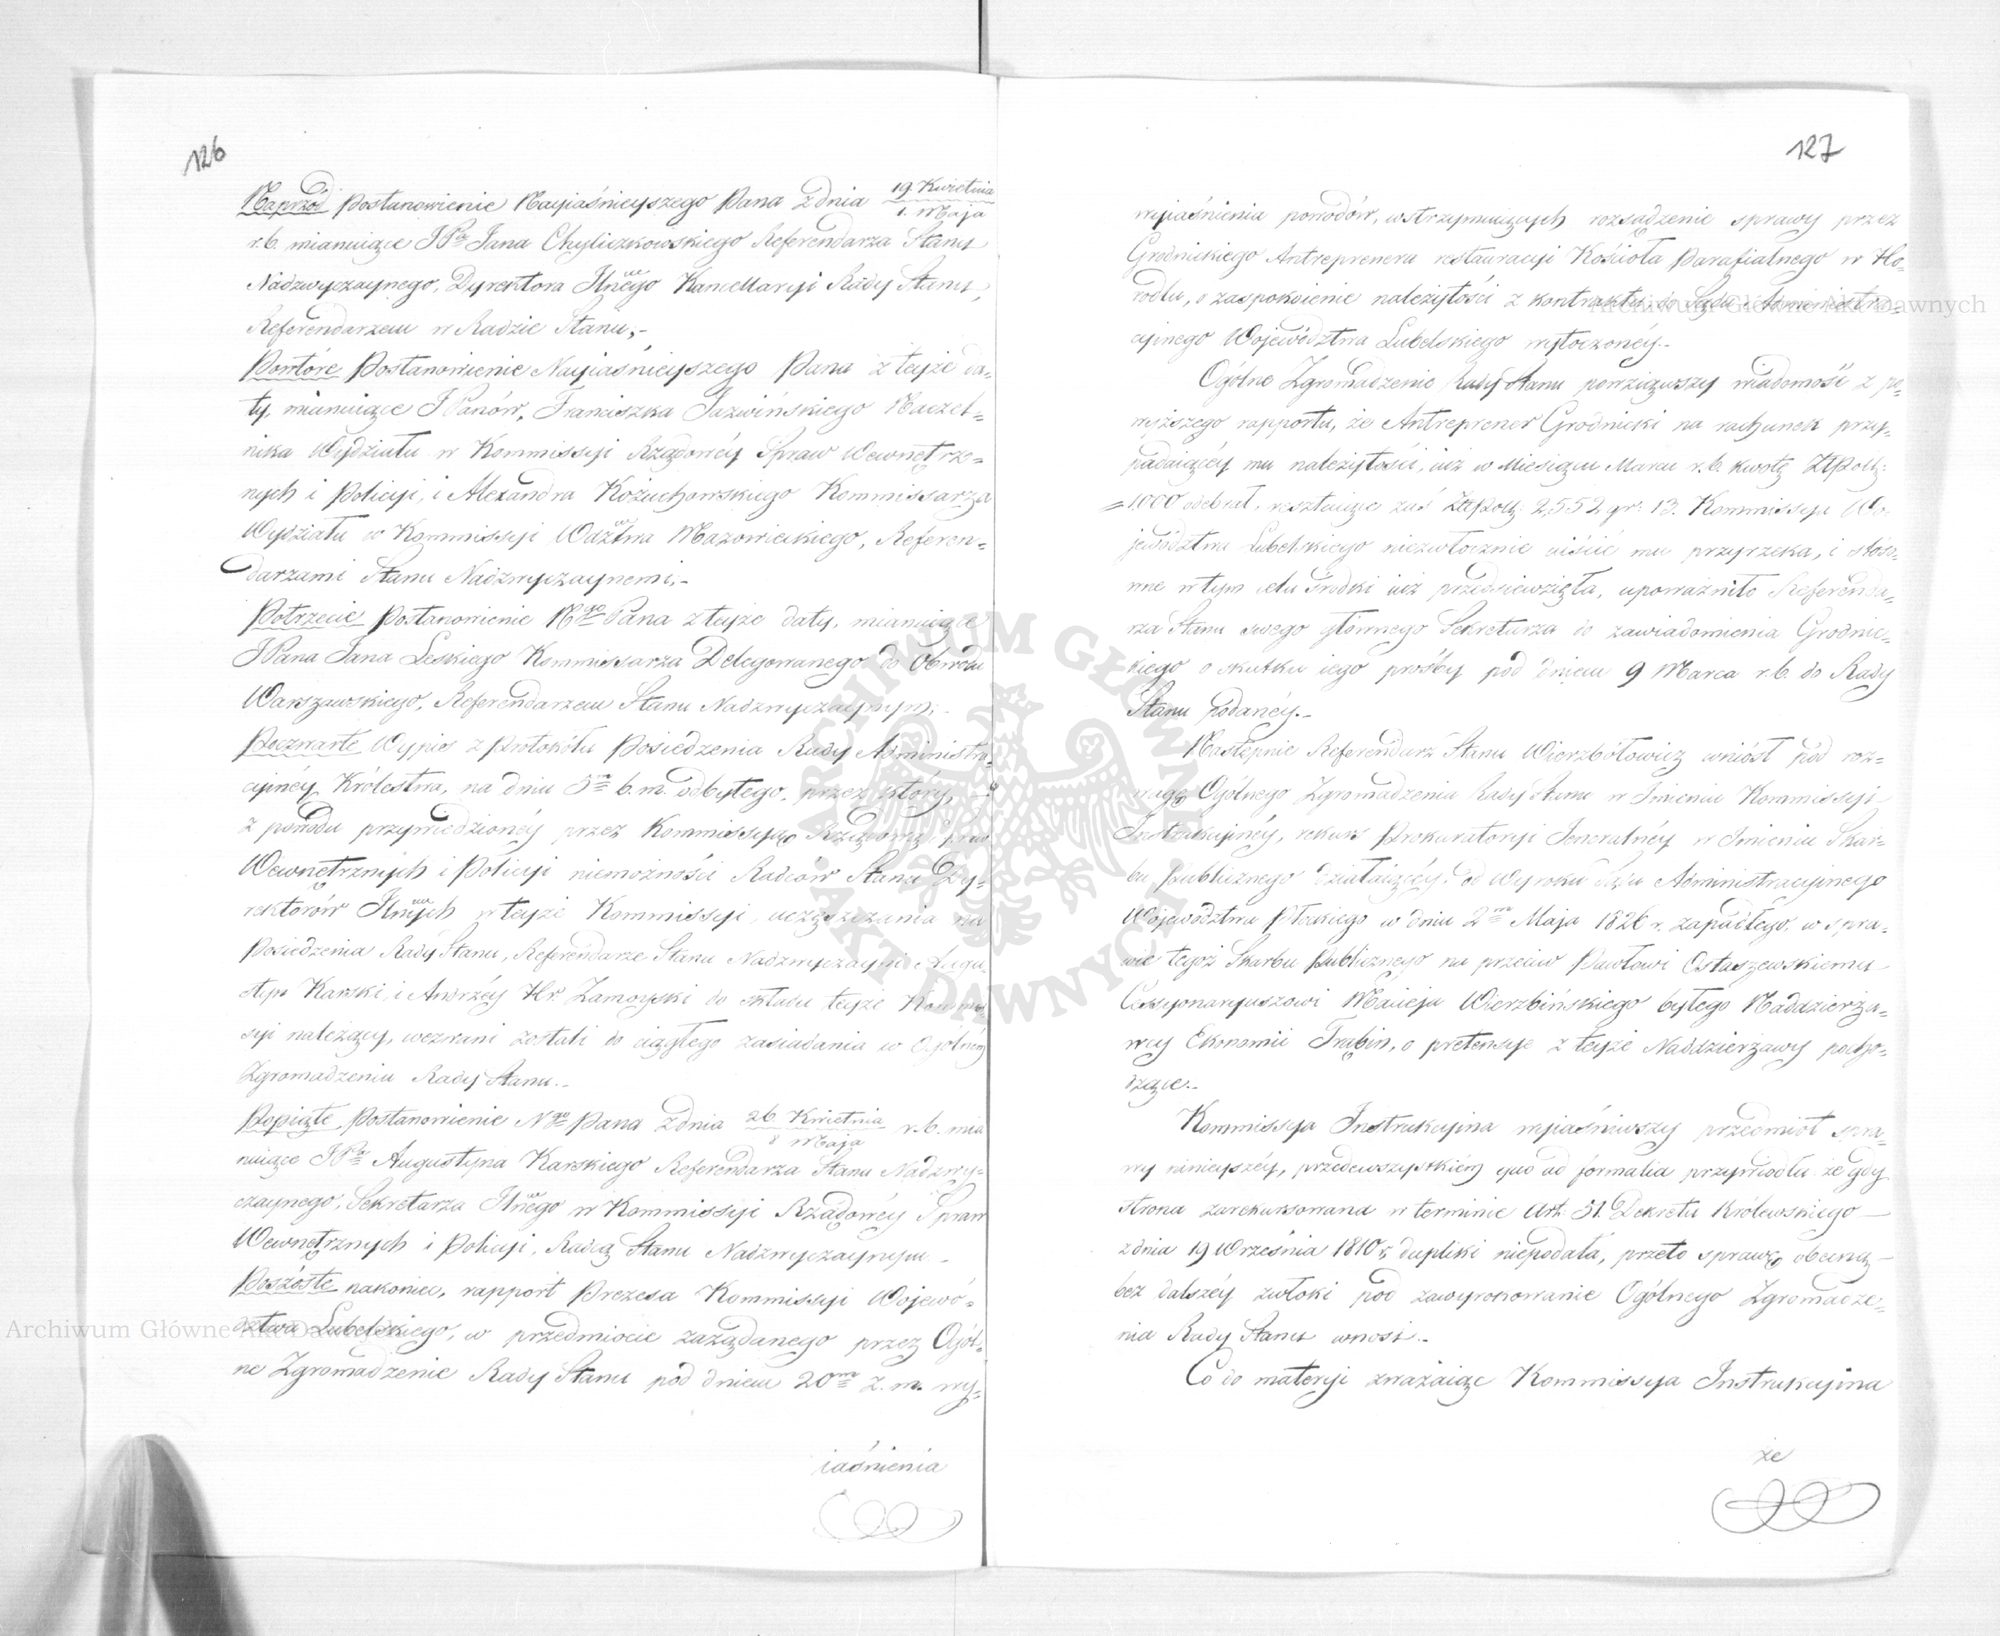 126
Naprzód Postanowienie Nayiaśnieyszego Pana z dnia 19. Kwietnia / 1. Maja
r.b. mianuiące JPa Jana Chyliczkowskiego Referendarza Stanu
Nadzwyczaynego, Dyrektora Jlnego Kancellaryi Rady Stanu,
Referendarzem w Radzie Stanu,-
Powtóre Postanowienie Nayiaśnieyszego Pana z teyże da-
ty, mianuiące JPanów, Franciszka Jaźwińskiego Naczel-
nika Wydziału w Kommissyi Rządowéy Spraw Wewnętrz-
nych i Policyi, i Alexandra Kożuchowskiego Kommissarza
Wydziału w Kommissyi Wdztwa Mazowieckiego, Referen-
darzami Stanu Nadzwyczaynemi,-
Potrzecie Postanowienie Ngo Pana z teyże daty, mianuiące
JPana Jana Leskiego Kommissarza Delegowanego do Obwodu
Warszawskiego, Referendarzem Stanu Nadzwyczaynym;-
Poczwarte Wypis z Protokółu Posiedzenia Rady Administra-
cyinéy Królestwa, na dniu 5m b.m. odbytego, przez który,
z powodu przywiedzionéy przez Kommissyią Rządową Spraw
Wewnętrznych i Policyi niemożności Radców Stanu Dy-
rektorów Jlnych w teyże Kommissyi, uczęszczania na
Posiedzenia Rady Stanu, Referendarze Stanu Nadzwyczayni Augu-
styn Karski, i Andrzéy Hr. Zamoyski do składu teyże Kommis-
syi należący, wezwani zostali do ciągłego zasiadania w Ogólném
Zgromadzeniu Rady Stanu.-
Popiąte, Postanowienie Ngo Pana z dnia 26 Kwietnia / 8 Maja r.b. mia
nuiące JPa Augustyna Karskiego Referendarza Stanu Nadzwy-
czaynego, Sekretarza Jlnego w Kommissyi Rządowéy Spraw
Wewnętrznych i Policyi, Radcą Stanu Nadzwyczaynym.-
Poszóste nakoniec, rapport Prezesa Kommissyi Wojewó-
dztwa Lubelskiego, w przedmiocie zażądanego przez Ogól-
ne Zgromadzenie Rady Stanu pod dniem 20m z.m. wy-
iaśnienia
127
wyiaśnienia powodów, wstrzymuiących rozsądzenie sprawy przez
Grodnickiego Antreprenera restauracyi Kościoła Parafialnego w Ho-
rodlu, o zaspokoienie należytości z kontraktu do Sądu Administra-
cyinego Województwa Lubelskiego wytoczonéy.-
Ogólne Zgromadzenie Rady Stanu powziąwszy wiadomość z po-
wyższego rapportu, że Antreprener Grodnicki na rachunek przy-
padaiącéy mu należytości, iuż w Miesiącu Marcu r.b. kwotę Złpol:
=1,000 odebrał, resztuiące zaś Złpol: 2,552 gr: 13. Kommissya Wo-
jewództwa Lubelskiego niezwłocznie uiścić mu przyrzeka, i stóso-
wne w tym celu środki iuż przedsięwzięła, upoważniło Referenda-
rza Stanu swego głównego Sekretarza do zawiadomienia Grodnic-
kiego o skutku iego prośby pod dniem 9 Marca r.b. do Rady
Stanu podanéy.-
Następnie Referendarz Stanu Wierzbołowicz wniósł pod roz-
wagę Ogólnego Zgromadzenia Rady Stanu w Imieniu Kommissyi
Instrukcyinéy, rekurs Prokuratoryi Jeneralnéy w Imieniu Skar-
bu Publicznego działaiącéy, od Wyroku Sądu Administracyinego
Województwa Płockiego w dniu 2m Maja 1826 r. zapadłego, w spra-
wie tegoż Skarbu Publicznego na przeciw Pawłowi Ostaszewskiemu
Cessyonaryuszowi Macieja Wierzbińskiego byłego Naddzierża-
wcy Ekonomii Trąbin, o pretensye z teyże Naddzierżawy pocho-
dzące.-
Kommissya Instrukcyina wyiaśniwszy przedmiot spra-
wy ninieyszéy, przedewszystkiém quo ad formalia przywiodła: że gdy
strona zarekursowana w terminie Art. 51. Dekretu Królewskiego
z dnia 19 Września 1810 r. dupliki niepodała, przeto sprawę obecną
bez dalszéy zwłoki pod zawyrokowanie Ogólnego Zgromadze-
nia Rady Stanu wnosi.-
Co do materyi zważaiąc Kommissya Instrukcyina
że
Archiwum Główne Akt Dawnych
Archiwum Główne Akt Dawnych
ARCHIWUM GŁÓWNE AKT DAWNYCH